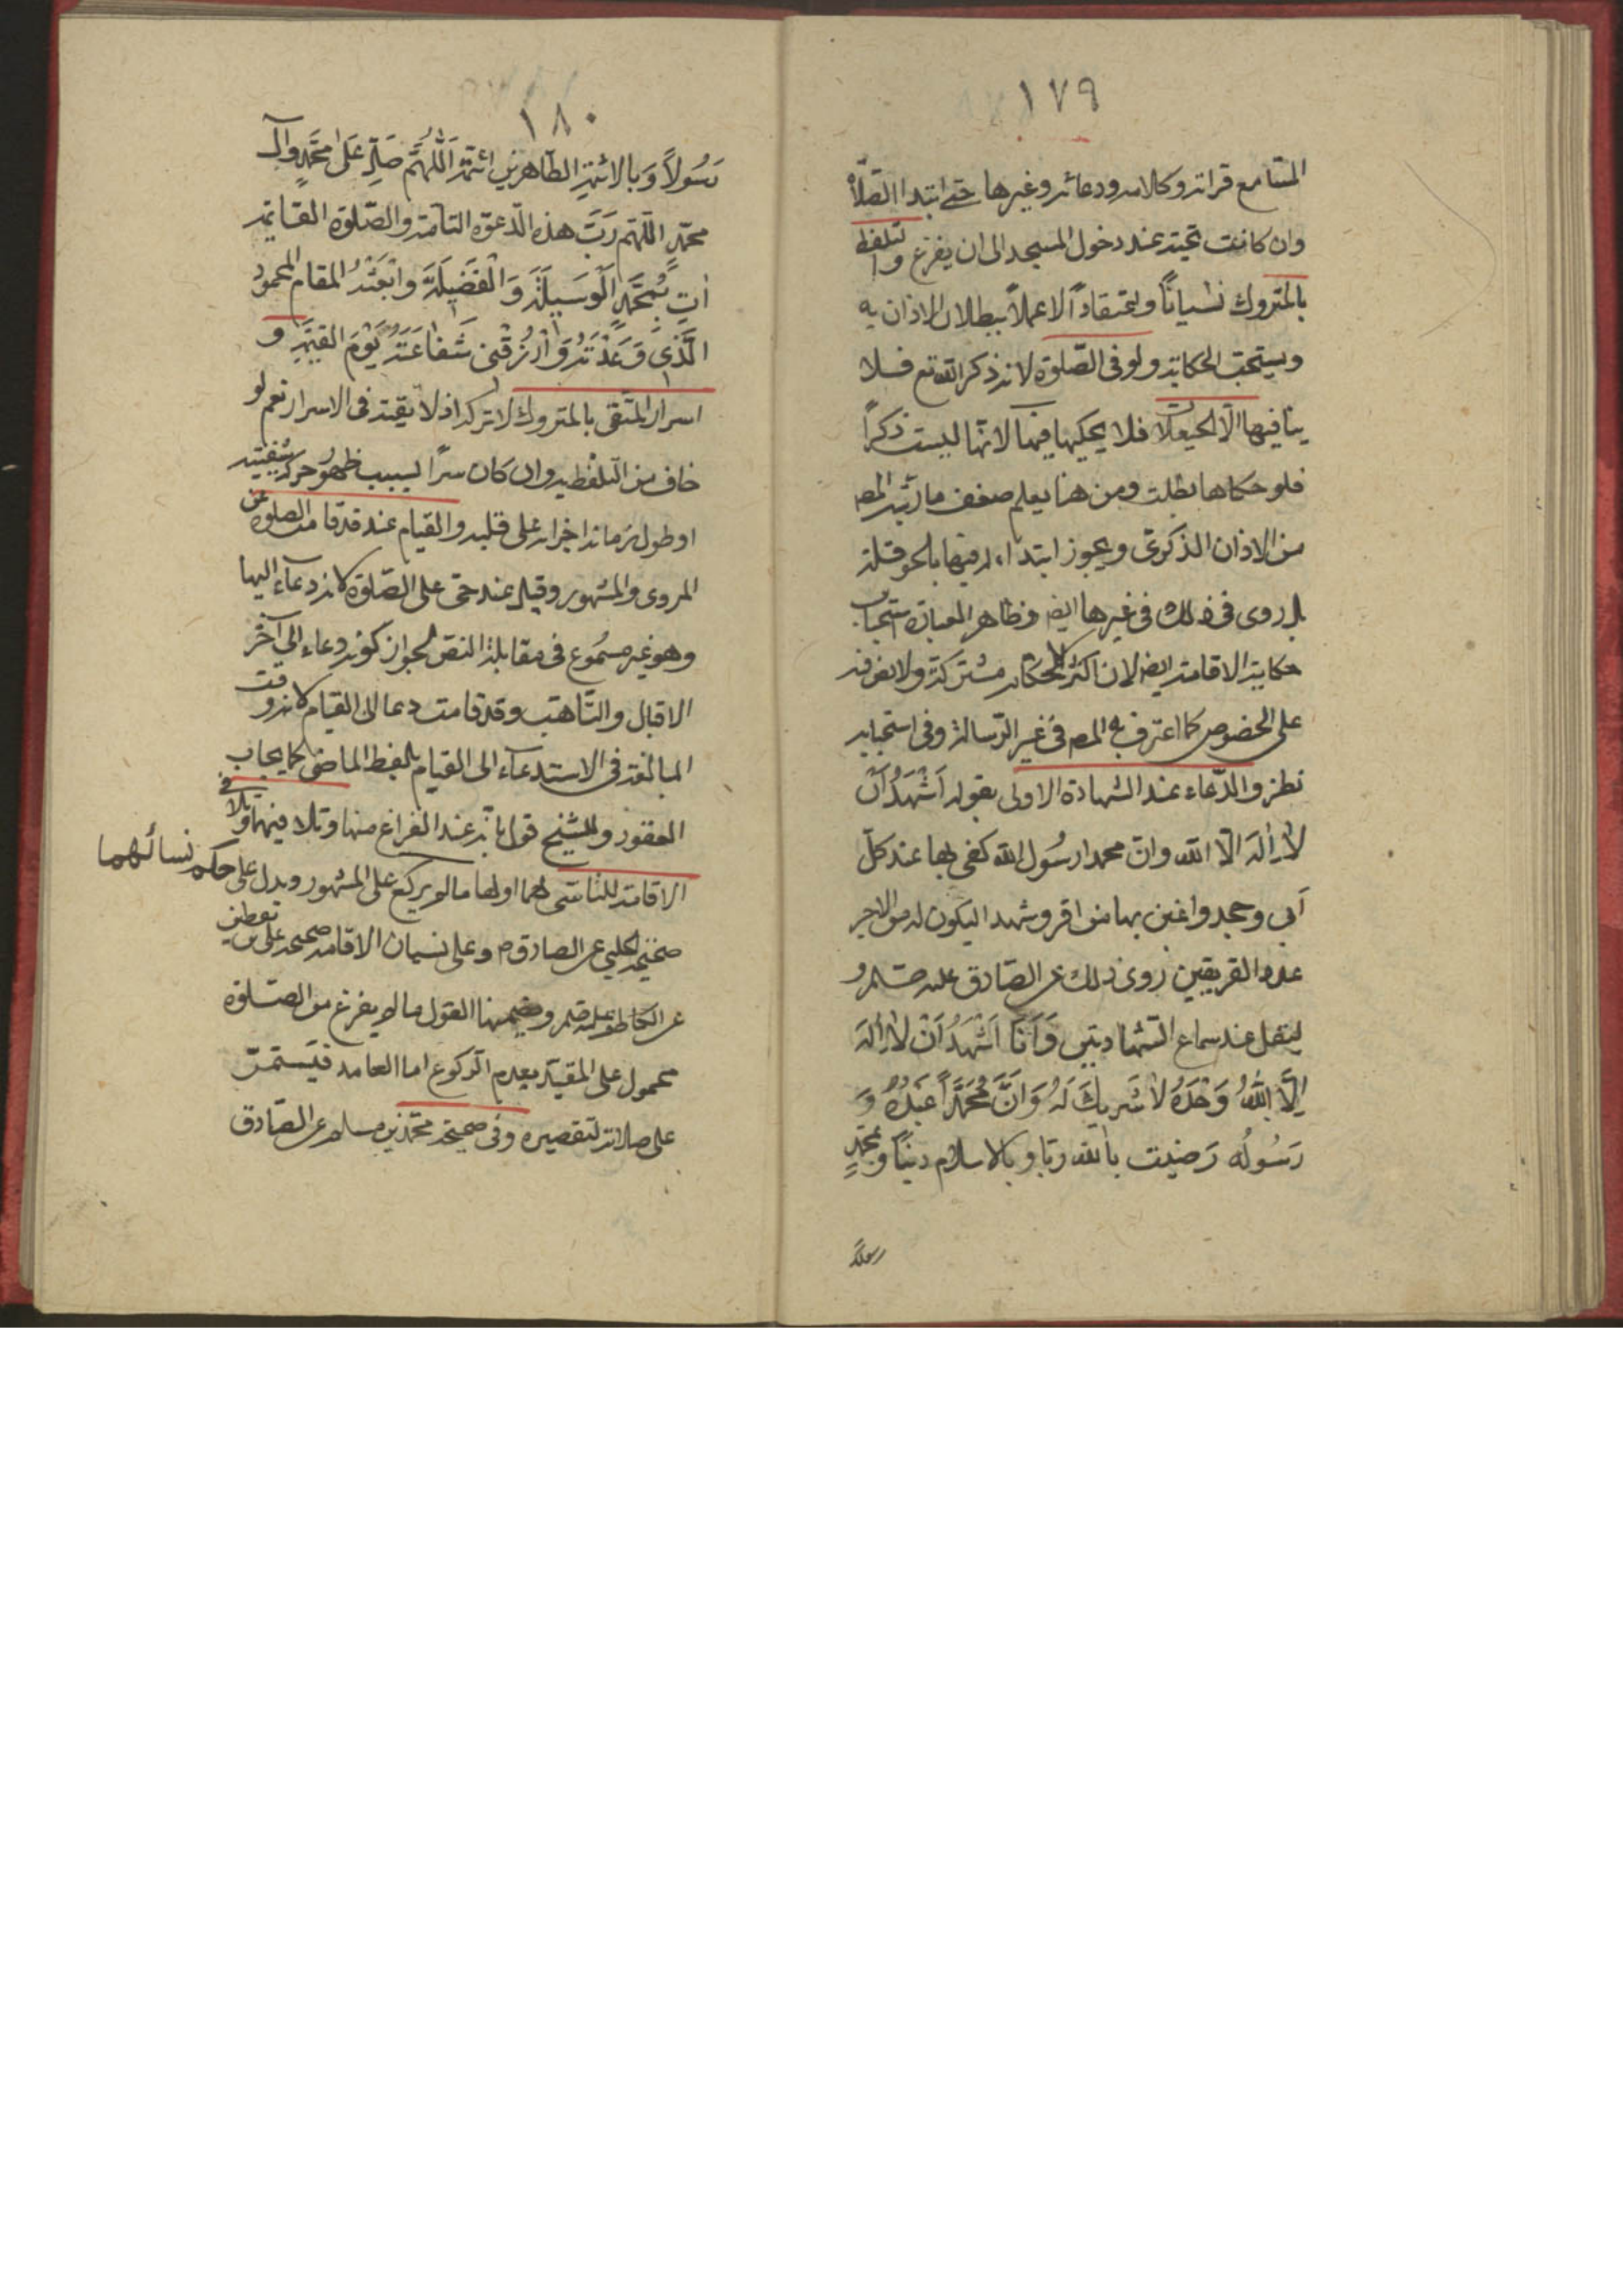 ١٧٩
السامع قراته وكلامه ودعائه وغيرها حتى ابتدا الصلاة
وان كانت تحية عند دخول المسجد الى ان يفرغ والتلفظ
بالمتروك نسيانا واعتقادا لا عملا ببطلان الاذان به
ويستحب الحكاية ولو فى الصّلوة لانه ذكر الله تع فلا
ينافيها الّا الحيعلات فلا يحكيها فيها لانها ليست ذكراً
فلو حكاها بطلت ومن هنا يعلم ضعف ما رتبه المص
من الاذان الذكرى ويجوز ابتداء فيها بالحوقلة
بل روى فى ذلك فى غيرها ايض وظاهر العبارة استحباب
حكاية الاقامة ايض لان اكثر الاحكام مشتركة ولا نص فيه
على الخصوص كما اعترف به المص فى غير الرّسالة وفى استحبابه
نظر والدّعاء عند الشهادة الاولى بقوله اَشْهَدُ اَنْ
لا اِلٰهَ الّا الله وانّ محمدا رسُول الله كفى بها عند كلّ
اَبى وجحد واغنى بها من اقر وشهد اليكون له من الاجر
عدد الفريقين روى ذلك عن الصّادق عليه السلم و
ليقل عند سماع الشهادتين وَاَنَا اَشْهَدُ اَنْ لا اِلٰهَ
اِلَّا اللهُ وَحْدَهُ لا شَريكَ لَهُ وَاَنَّ مُحَمَّداً عَبْدُهُ وَ
رَسُولُه رَضيت بالله ربّا وبالاسلام ديناً وبمحمّدٍ
رسولاً
١٨٠
رَسُولاً وَبالائمّةِ الطاهرينِ ائمّة اَللّهُمَّ صَلِّ عَلىٰ محَمَّدٍ وآلِ
محمّدٍ اللّهُم رَبَّ هذه الدّعوة التامة والصّلوة القائمة
اٰتِ مُحَمَّدٍ الْوَسيلَةَ وَ الْفَضيلَةَ وَابْعَثْهُ المقام المحمود
الَّذى وَعَدْتَهُ وَارْزُقْنى شَفاعَتَهُ يَوْمَ القيٰمَةِ و
اسرار المتّقى بالمتروك لا تركه اذ لا تقيّة فى الاسرار نعم لو
خاف من التلفظ به وان كان سرّا بسبب ظهور حركة شفتيه
او طول زمانه اجراه على قلبه والقيام عند قد قامت الصلوة عن
المروى والمشهور وقيل عند حى على الصّلوة لانه دعاء اليها
وهو غير مسموع فى مقابلة النص لجواز كونه دعاء الى آخر
الاقبال والتّاهب وقد قامت دعا الى القيام لانه وقت
المبالغة فى الاستدعاء الى القيام بلفظ الماضى كما يجاب
العقود وللشيخ قول بانه عند الفراغ منها وتلا فيهما وتلافى
الاقامة للناسى لهما او لها ما لم يركع على المشهور ويدل على حكم نسائهما
صحيحة الحلبى عن الصادق م وعلى نسيان الاقامة صحيحة على بن يقطين
عن الكاظم عليه السلم وضمنها القول ما لم يفرغ من الصّلوة
محمول على المقيّد بعدم الرّكوع اما العامد فيَستمرّ
على صلاته لتقصيره وفى صحيحة محمّد بن مسلم عن الصّادق